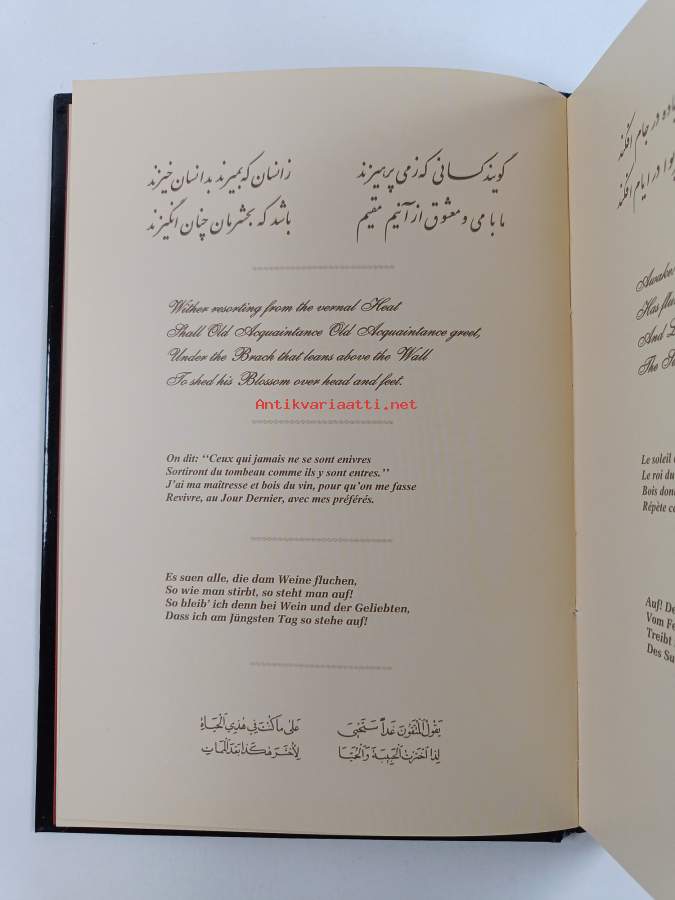 گویند کسانی که ز می پرهیزند
زانسان که بمیرند بدانسان خیزند
ما با می و معشوق از آنیم مقیم
باشد که بحشرمان چنان انگیزند
Wither resorting from the vernal Heat
Shall Old Acquaintance Old Acquaintance greet,
Under the Brach that leans above the Wall
To shed his Blossom over head and feet.
Antikvariaatti.net
On dit: “Ceux qui jamais ne se sont enivres
Sortiront du tombeau comme ils y sont entres.”
J'ai ma maîtresse et bois du vin, pour qu'on me fasse
Revivre, au Jour Dernier, avec mes préférés.
Es saen alle, die dam Weine fluchen,
So wie man stirbt, so steht man auf!
So bleib' ich denn bei Wein und der Geliebten,
Dass ich am Jüngsten Tag so stehe auf!
يقول المتقون غدا سنحيى
على ما كنت في هذي الحياة
لذا اخترت الحبيبة والحميا
لأحشر هكذا بعد الممات
اده در جام افکند
در ایام افکند
Awake
Has flu
And L
The Su
Le soleil
Le roi du
Bois don
Répète c
Auf! De
Vom Fe
Treibt
Des Su